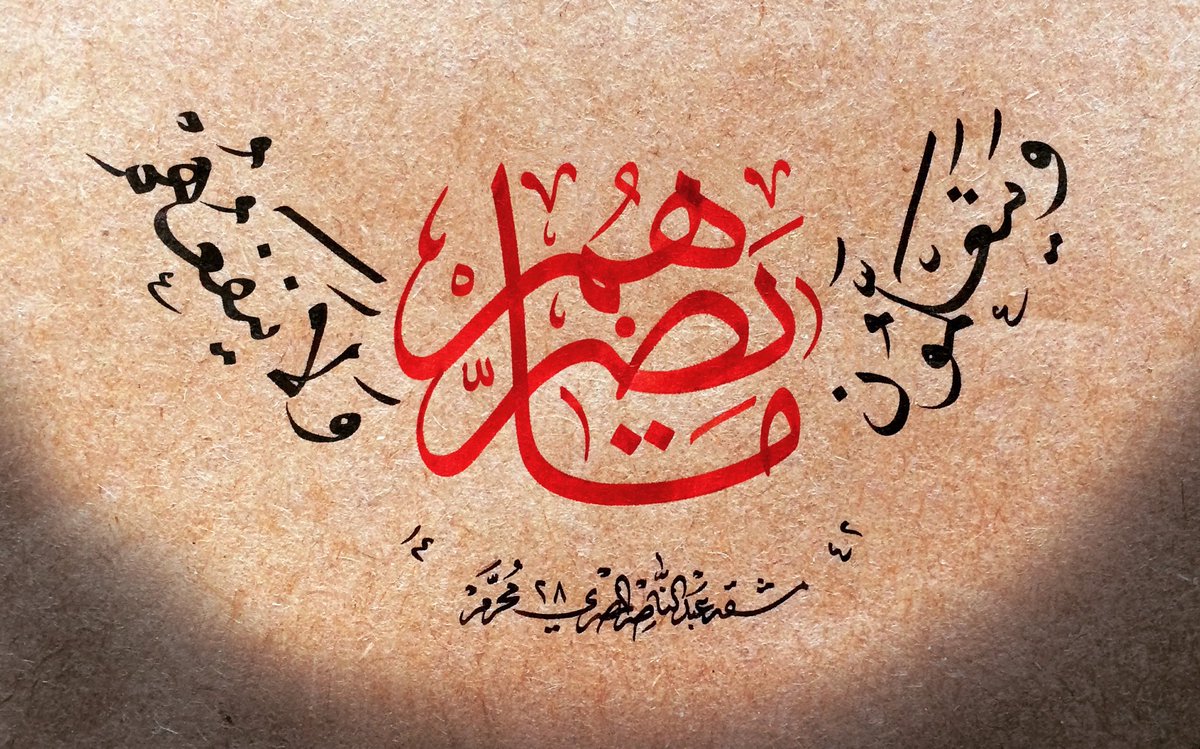 ويتعلمون
ما يضرهم
ولا ينفعهم
١٤ ٤٢
مشقه عبد الناصر المصري ٢٨ مُحَرَّم